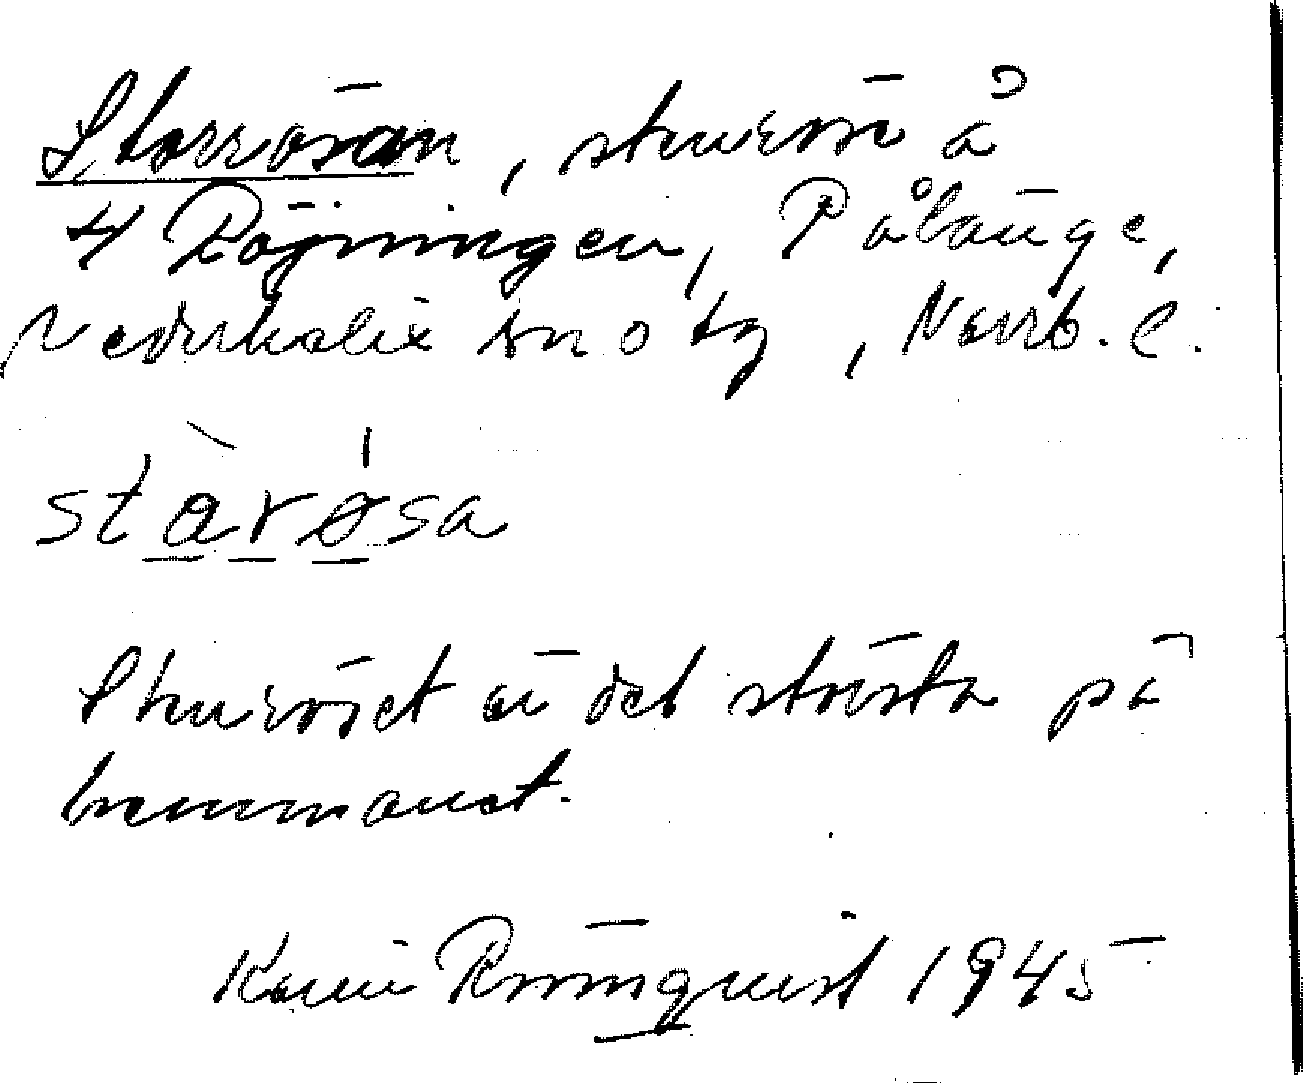 Storrösan, stenröse å
4 Röjningen, Pålänge,
Nederkalix sn o tg, Norrb. l.
stàrǿsa
Stenröset är det största på
hemmanet.
Karin Rönnquist 1945